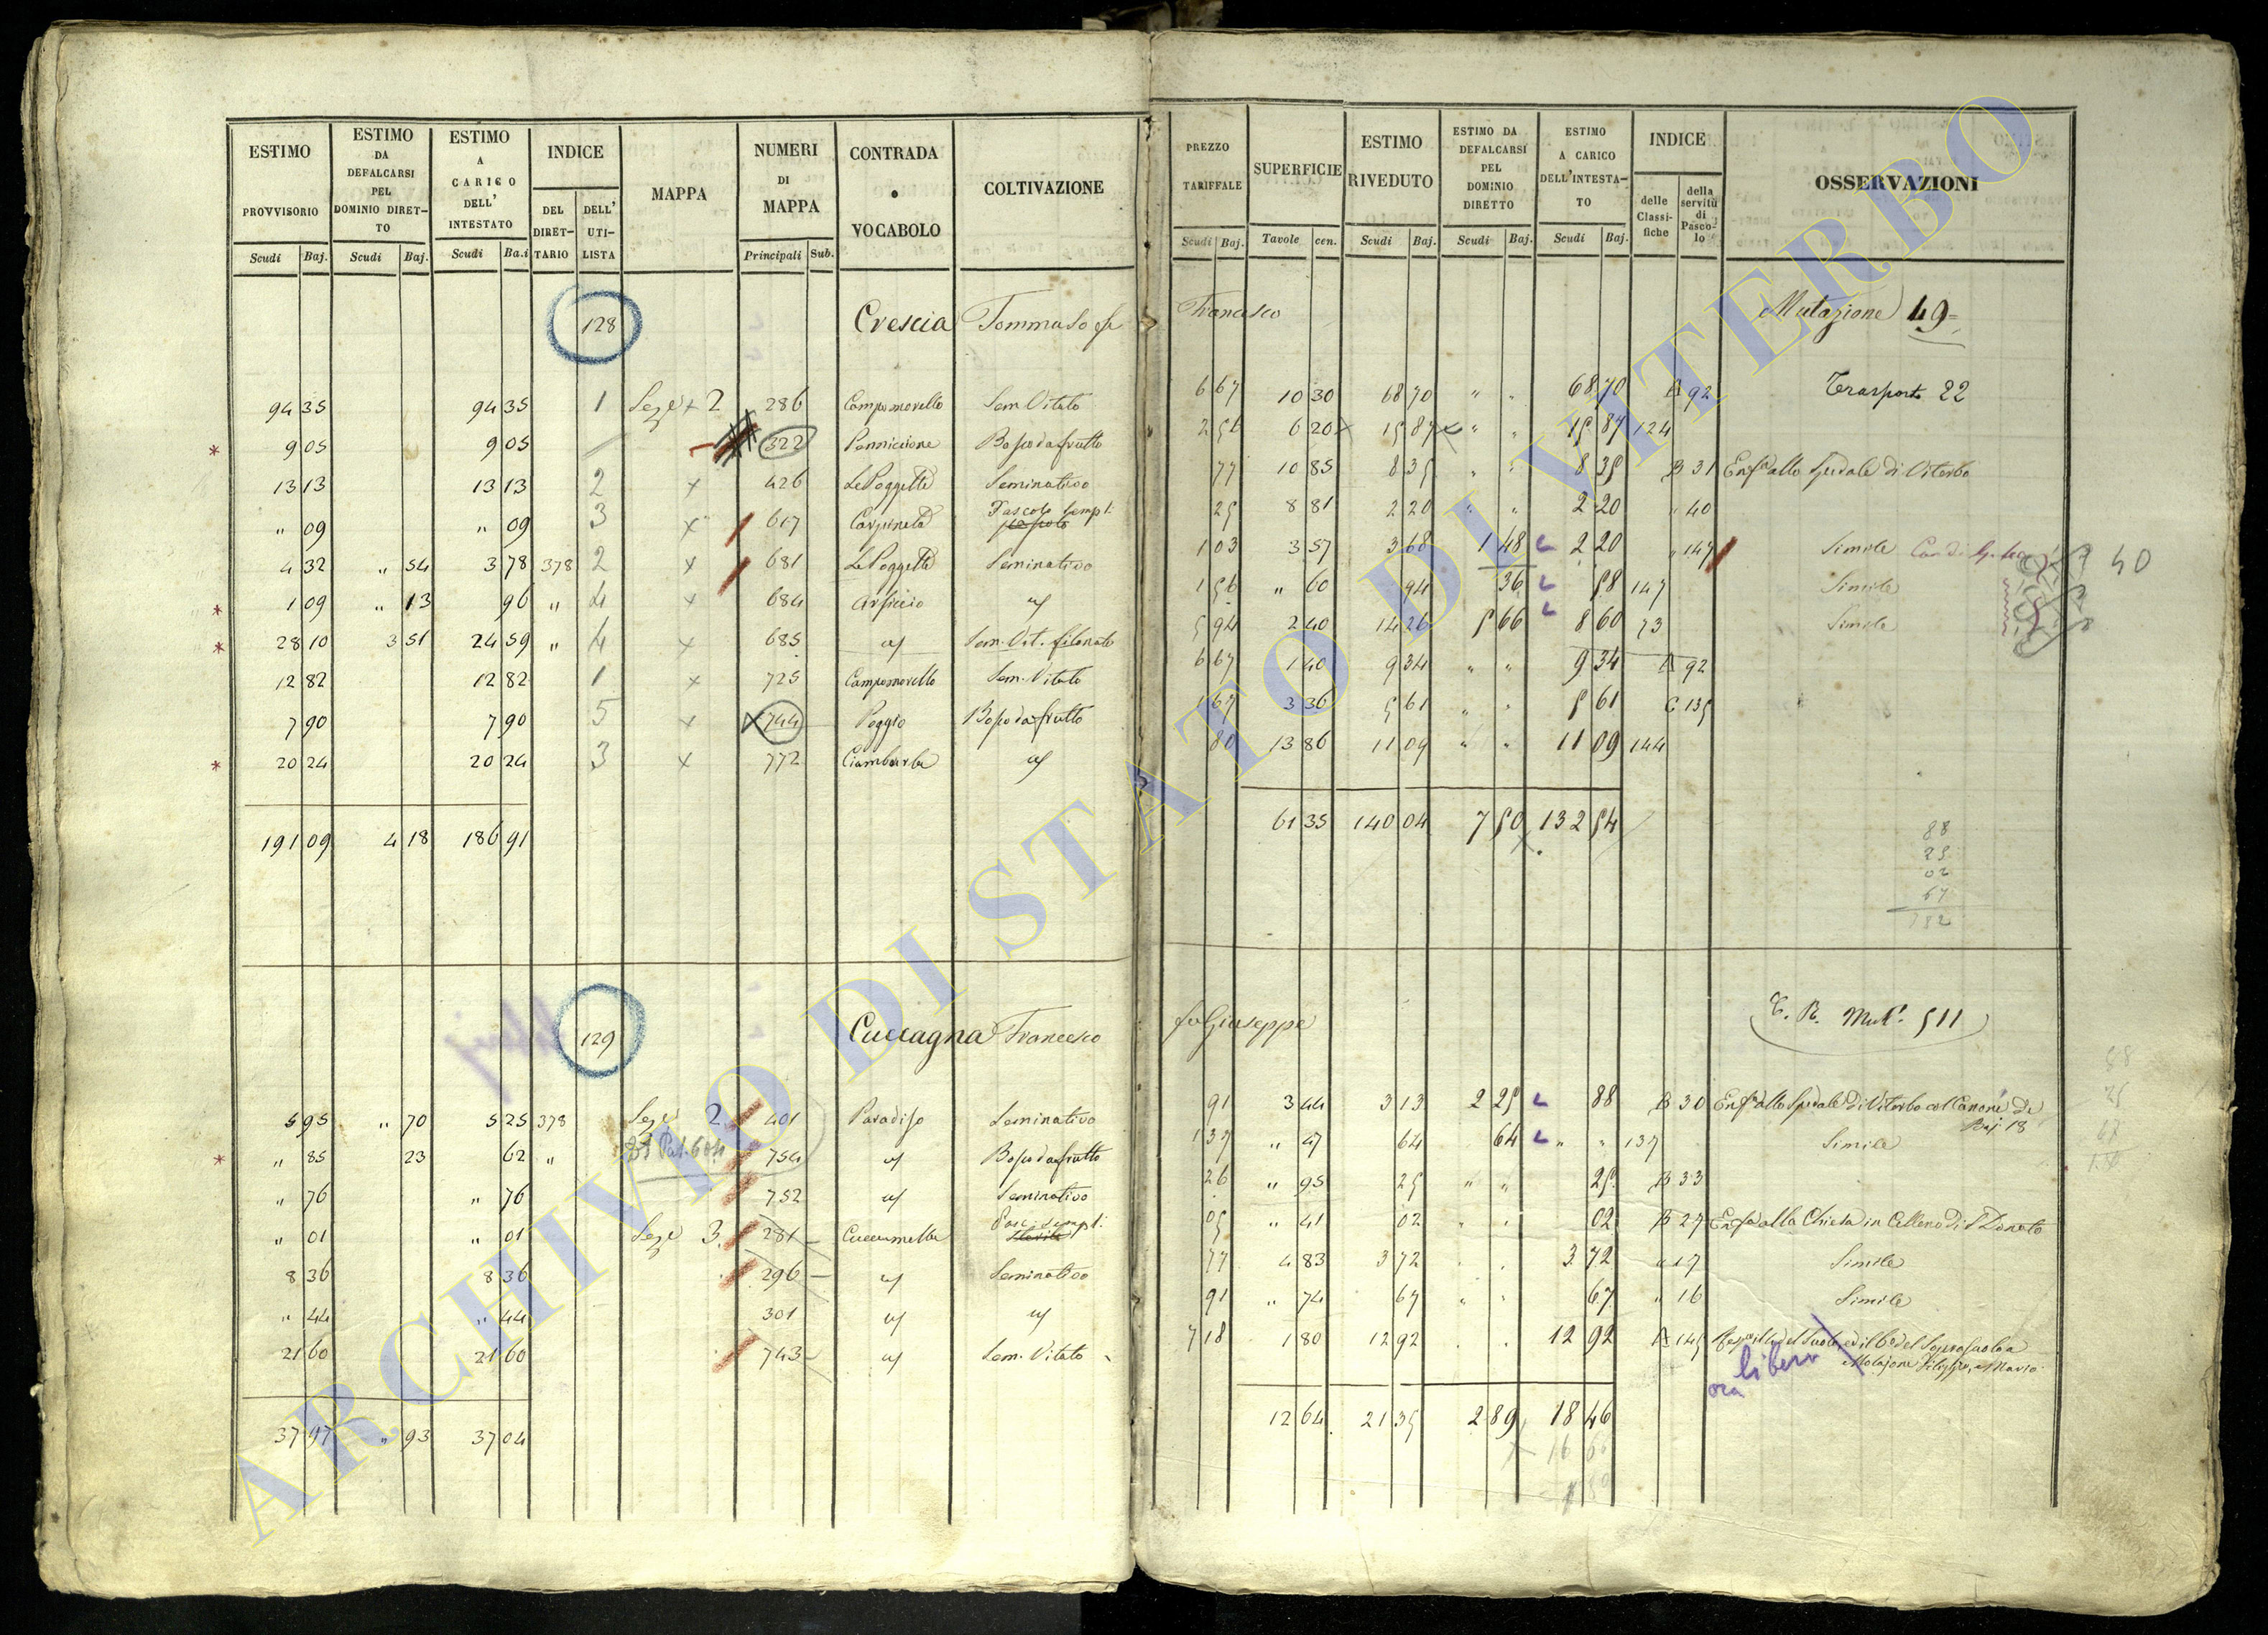 ESTIMO PROVVISORIO Scudi Baj. ESTIMO DA DEFALCARSI PEL DOMINIO DIRETTO Scudi Baj. ESTIMO A CARICO DELL' INTESTATO Scudi Ba.i INDICE DEL DIRETTARIO DELL' UTILISTA MAPPA NUMERI DI MAPPA Principali Sub. CONTRADA o VOCABOLO COLTIVAZIONE
PREZZO TARIFFALE Scudi Baj. SUPERFICIE Tavole cen. ESTIMO RIVEDUTO Scudi Baj. ESTIMO DA DEFALCARSI PEL DOMINIO DIRETTO Scudi Baj. ESTIMO A CARICO DELL'INTESTATO Scudi Baj. INDICE delle Classifiche della servitù di Pascolo OSSERVAZIONI
128 Crescia Tommaso fu Francesco Mutazione 49
94 35 94 35 1 Seze 2 286 Campomorello Sem. Vitato 6 67 10 30 68 70 " " 68 70 A 92 Trasporto 22
* 9 05 9 05 322 Pannicione Bosco da frutto 2 56 6 20 15 87 " " 15 87 124
13 13 13 13 2 x 426 Le Poggette Seminativo 77 10 85 8 35 " " 8 35 B 31 Enf.a allo Spedale di Viterbo
" 09 " 09 3 x 617 Carpineta Pascolo sempl. 25 8 81 2 20 " " 2 20 " 40
4 32 " 54 3 78 378 2 x 681 Le Poggette Seminativo 1 03 3 57 3 68 1 48 2 20 " 147 Simile 40
* 1 09 " 13 96 " 4 x 684 Arsiccio 1 56 " 60 94 36 58 147 Simile
* 28 10 3 51 24 59 " 4 x 685 Sem. Vit. filonato 5 94 2 40 14 26 5 66 8 60 73 Simile
12 82 12 82 1 x 725 Campomorello Sem. Vitato 6 67 1 40 9 34 " " 9 34 A 92
7 90 7 90 5 x 744 Poggio Bosco da frutto 1 67 3 36 5 61 " " 5 61 C 135
* 20 24 20 24 3 x 772 Ciambarba 80 13 86 11 09 " " 11 09 144
191 09 4 18 186 91 61 35 140 04 7 50 132 54
88
25
02
67
182
129 Cuccagna Francesco fu Giuseppe T. R. Mut. 511
5 95 " 70 5 25 378 Seze 2 401 Paradiso Seminativo 91 3 44 3 13 2 25 88 B 30 Enf.a allo Spedale di Viterbo col Canone di
Baj. 18
* " 85 23 62 " 754 Bosco da frutto 1 37 " 47 64 64 " " 137 Simile
" 76 " 76 752 Seminativo 26 " 95 25 " " 25 B 33
" 01 " 01 Seze 3 281 Cuccumella Pasc. sempl. 05 " 41 02 " " 02 B 27 Enf.a alla Chiesa in Celleno di S. Donato
8 36 8 36 296 Seminativo 77 4 83 3 72 " " 3 72 " 17 Simile
" 44 " 44 301 91 " 74 67 " " 67 " 16 Simile
21 60 21 60 743 Sem. Vitato 7 18 1 80 12 92 " " 12 92 A 145
ora libera
37 97 " 93 37 04 12 64 21 35 2 89 18 46
ARCHIVIO DI STATO DI VITERBO